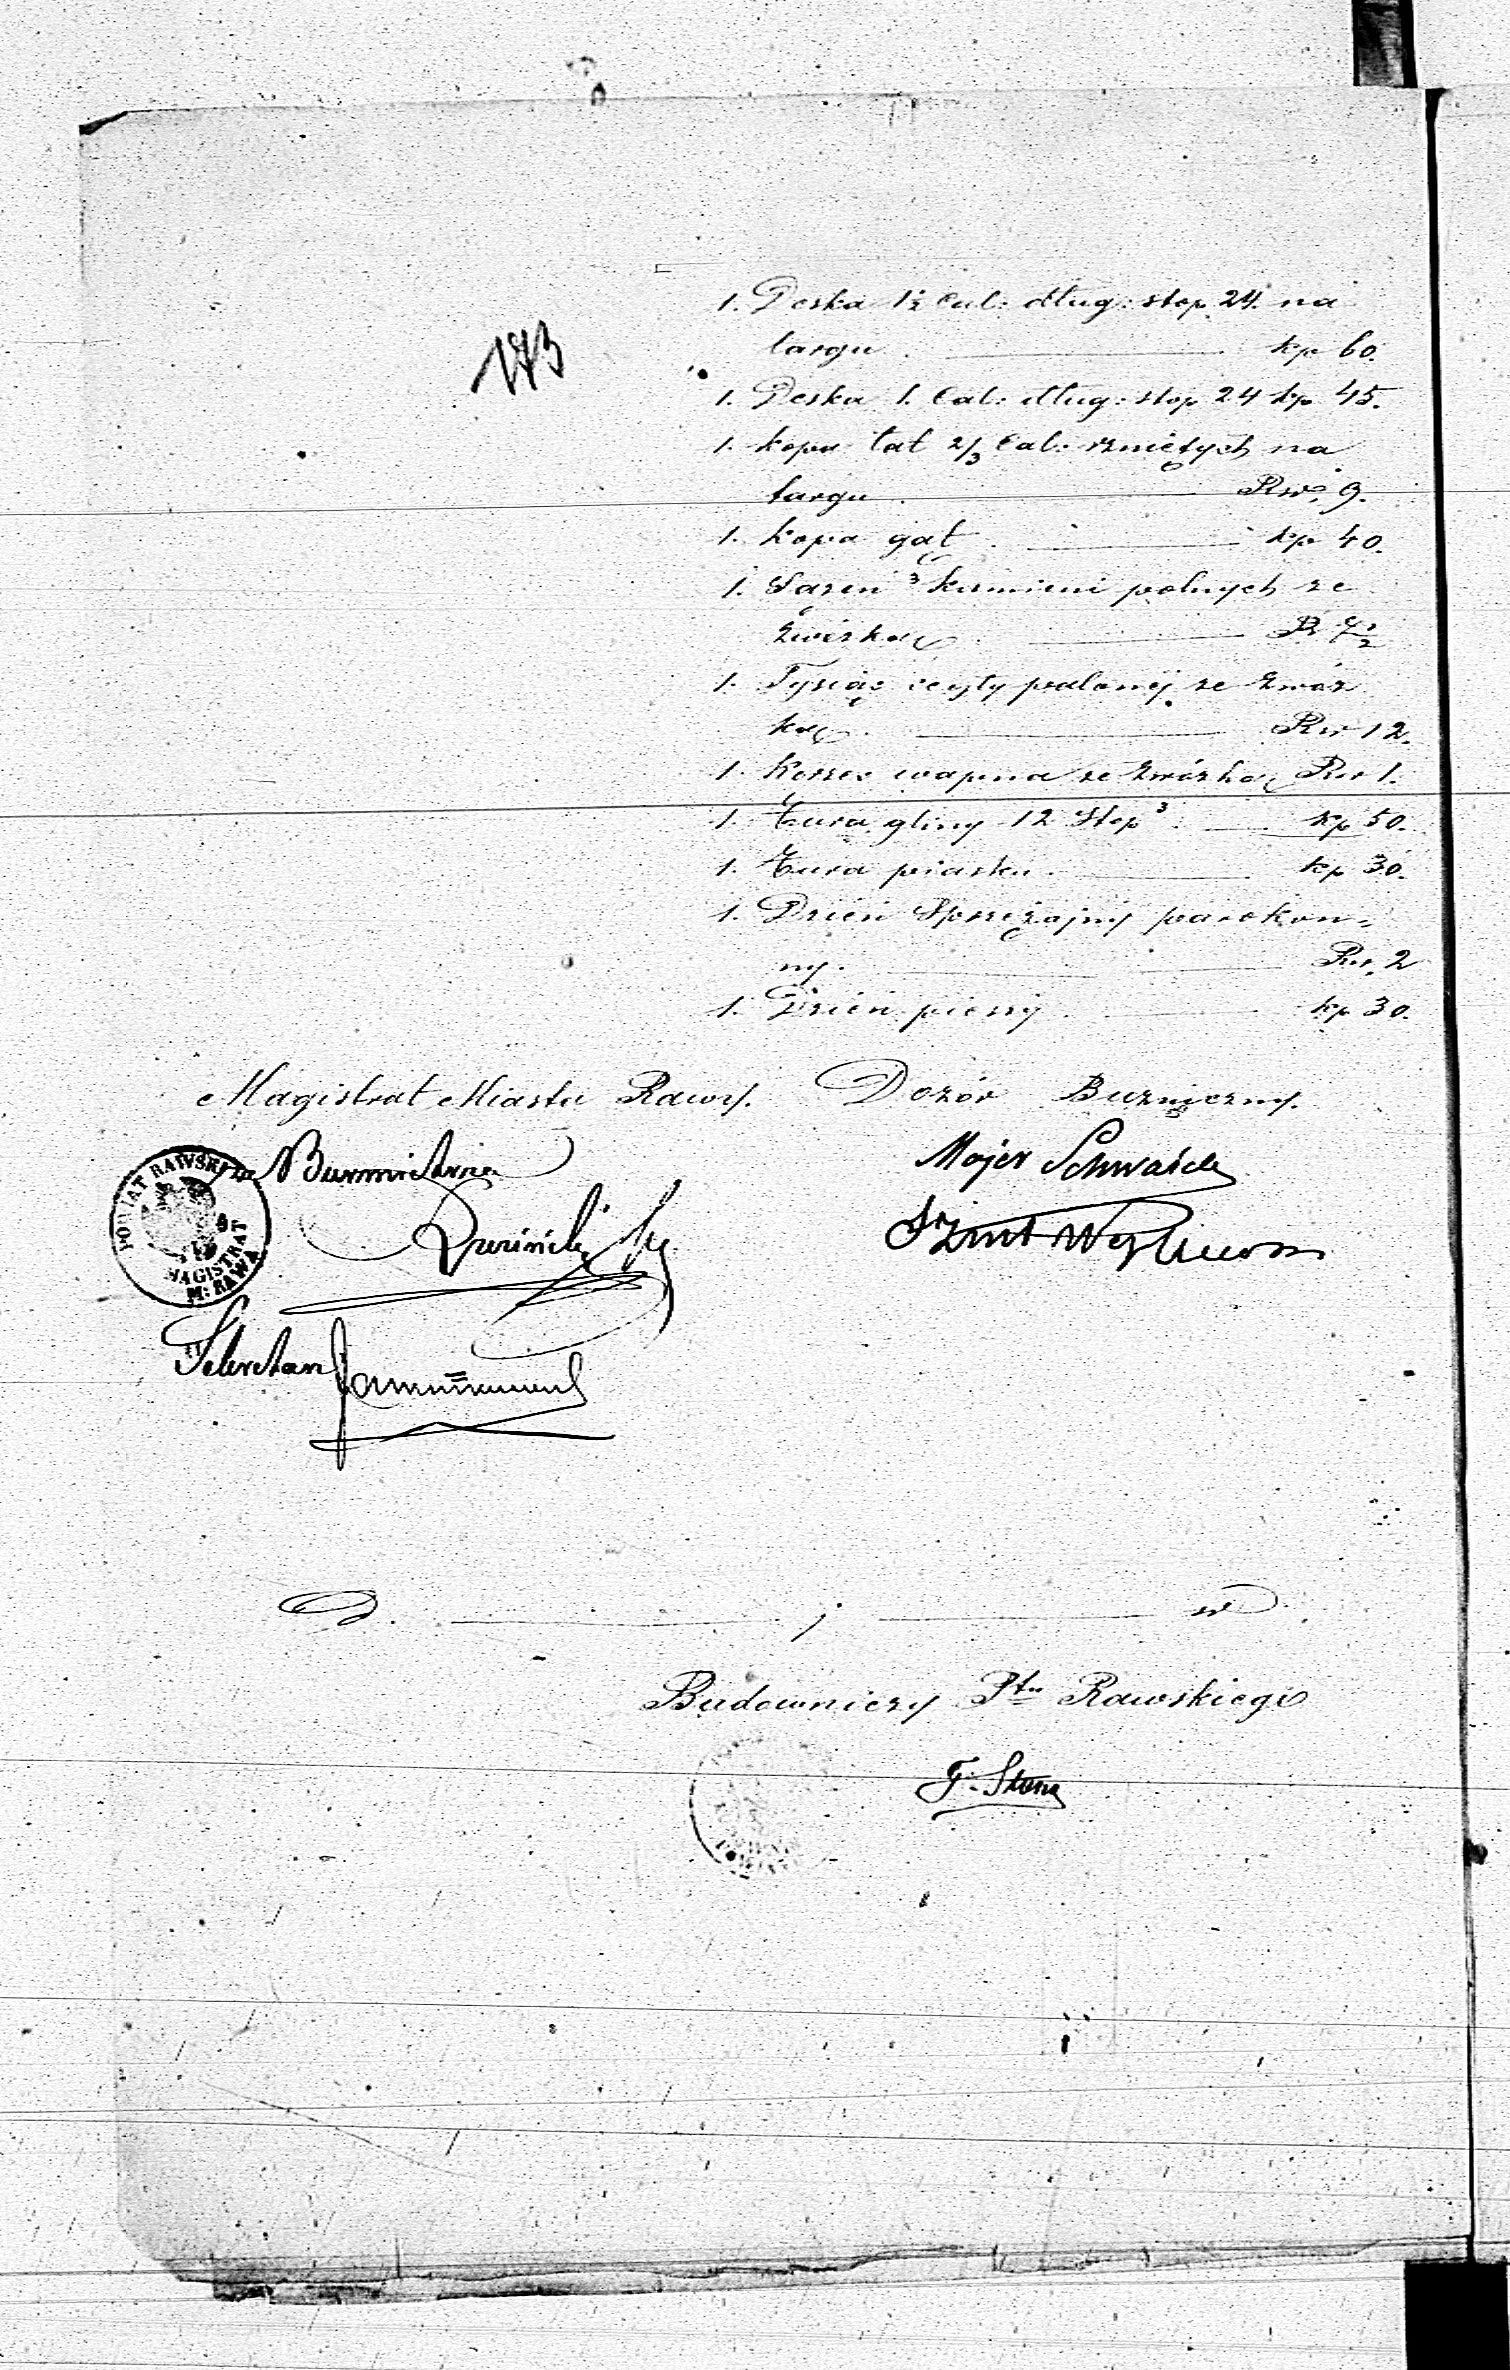 173
1. Deska 1½ Cal: dług: stop 24. na
targu . kp 60.
1. Deska 1. Cal: dług: stop 24 kp 45.
1. kopa łat 2/3 Cal: rzniętych na
targu . Rsr. 9.
1. kopa gąt . kp 40.
1. Sążeń ³ kamieni polnych ze
zwózką Rs 7½
1. Tysiąc cegły palonéj ze zwóz
ką . Rsr 12.
1. Korzec wapna ze zwózką Rsr 1.
1. Fura gliny 12 Stop ³ . kp 50.
1. Fura piasku . kp 30.
1. Dzień Sprzężajny parokon,
ny . Rsr. 2
1. Dzień pieszy . kp 30.
Magistrat Miasta Rawy. Dozór Bużniczny.
Burmistrz
Majer Schwartz
POWIAT RAWSKI
MAGISTRAT
M: RAWA
Sekretarz
D. , w
Budowniczy Ptu Rawskiego